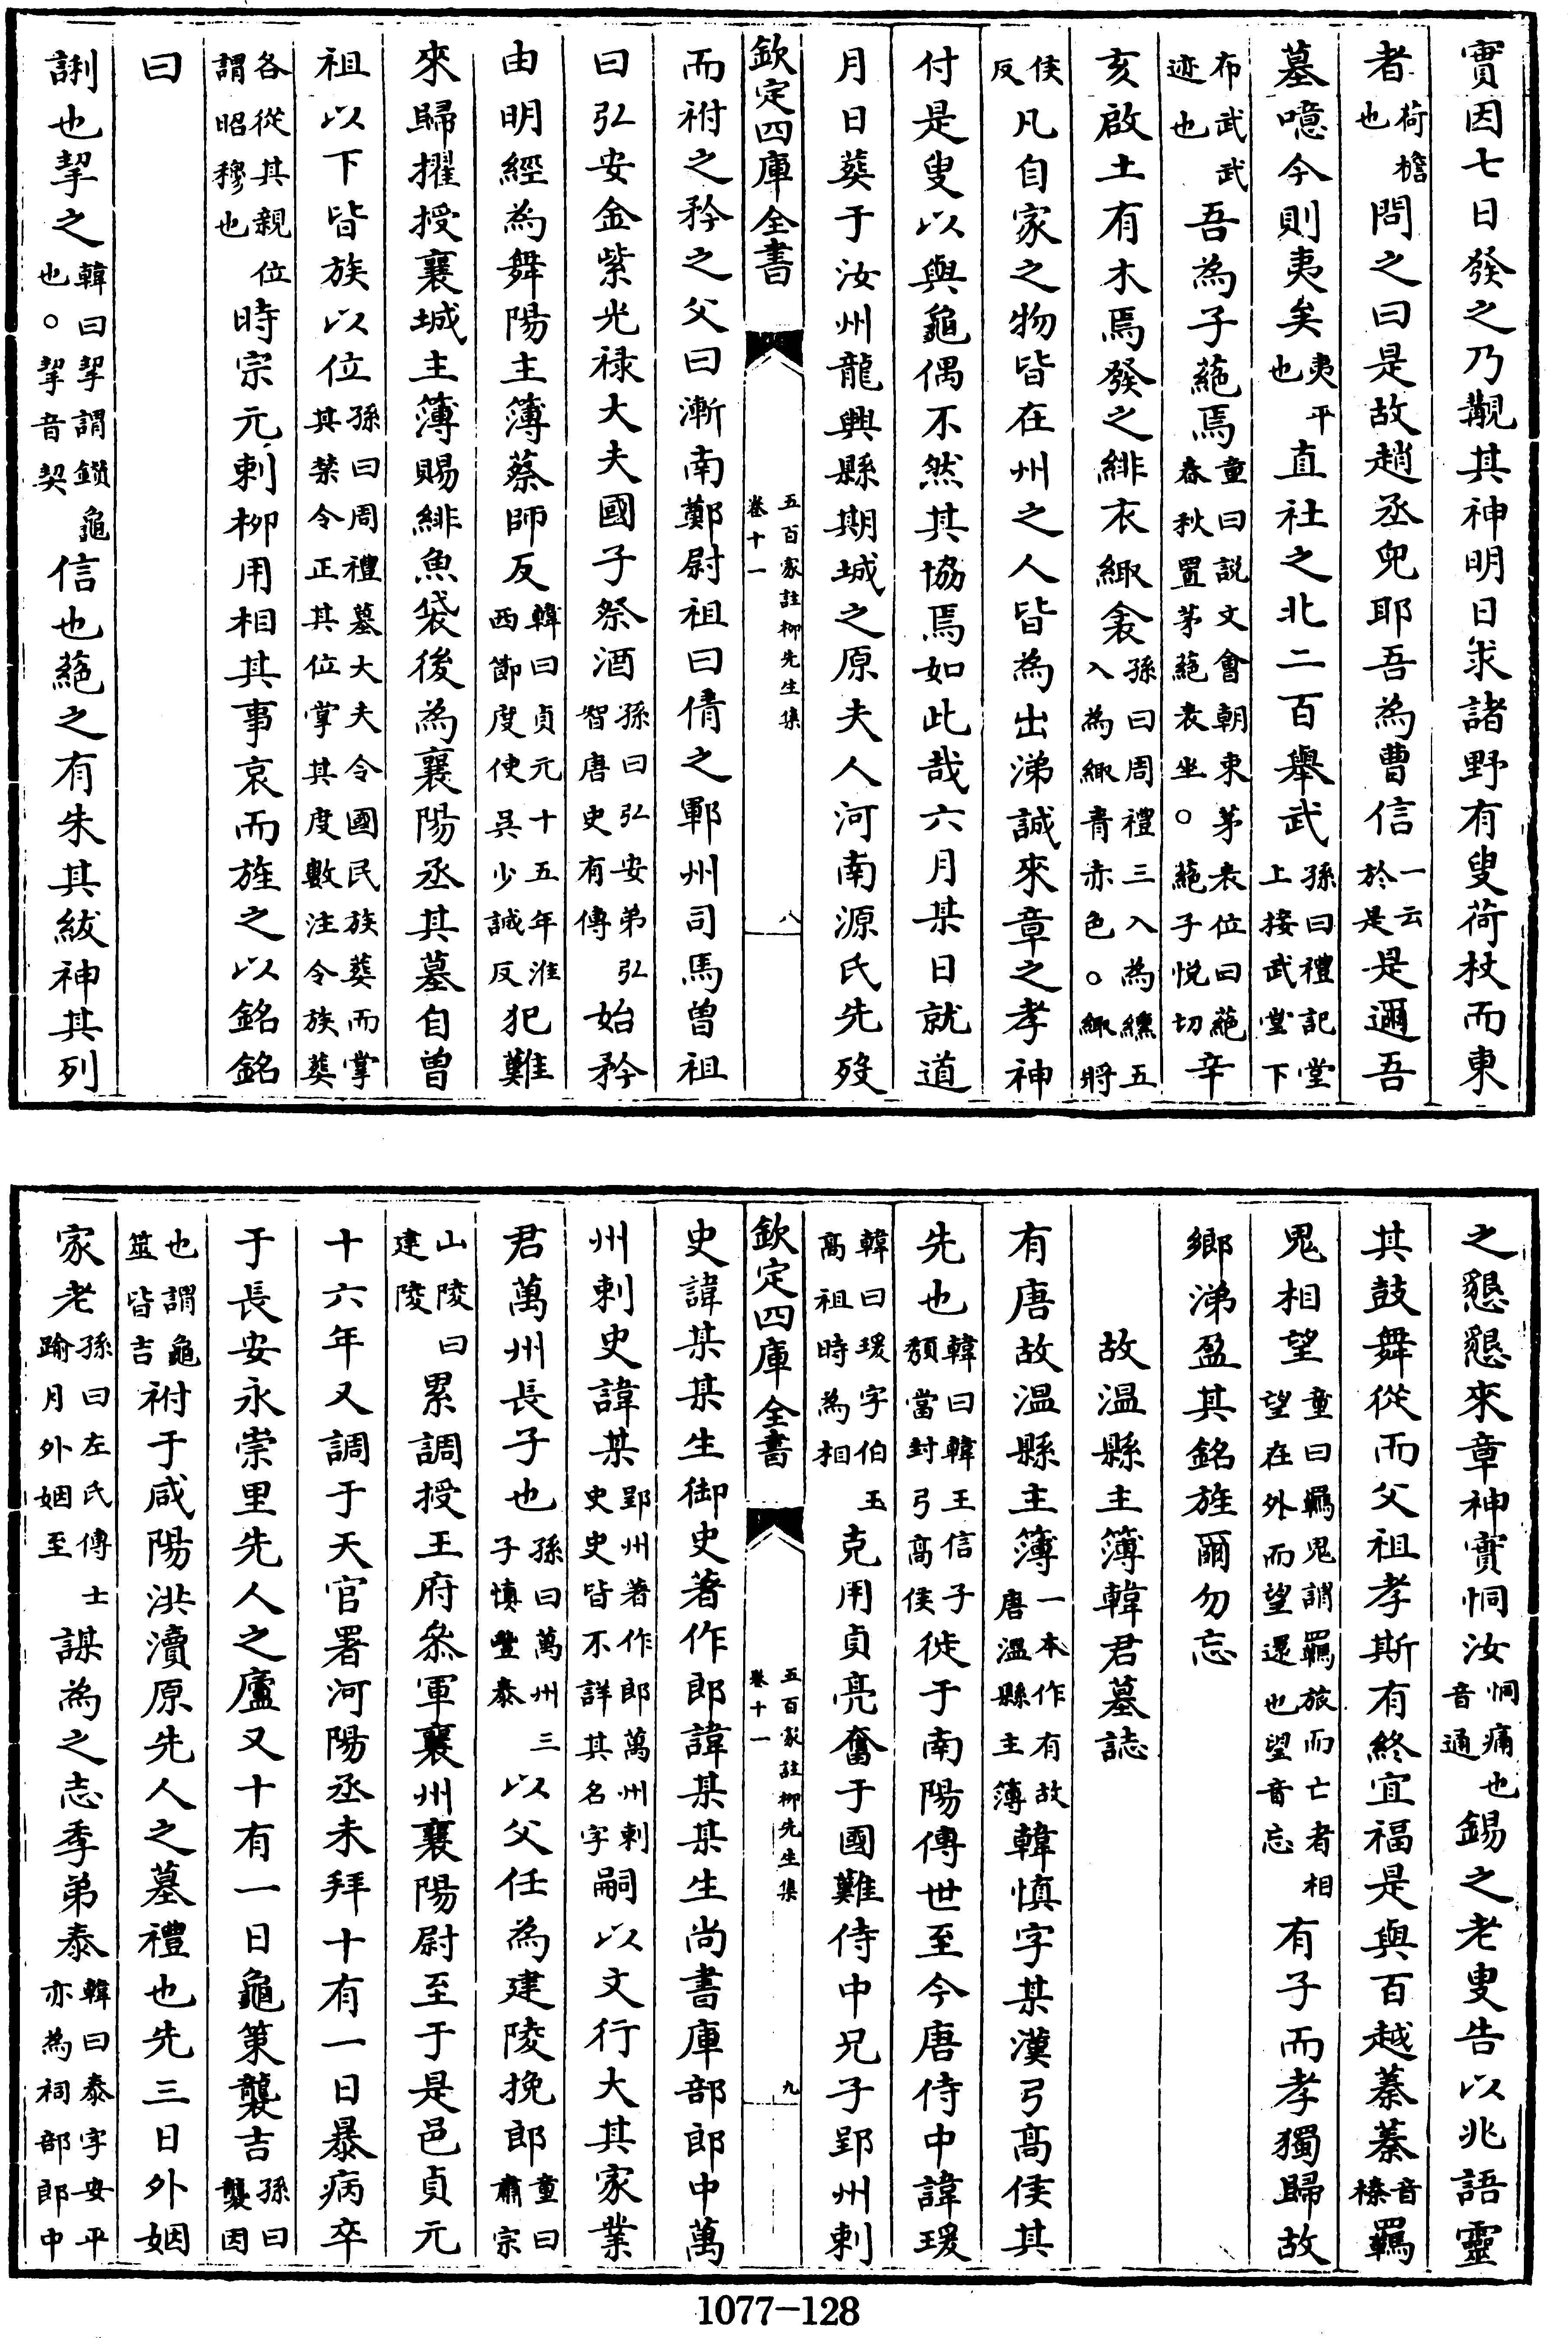 實因七日發之乃覯其神明日求諸野有叟荷杖而東
者荷檐也問之曰是故趙丞兒耶吾為曹信一云於是是邇吾
墓噫今則夷矣夷平也直社之北二百舉武孫曰禮記堂上接武堂下
布武武迹也吾為子蕝焉童曰說文會朝束茅表位曰蕝春秋置茅蕝表坐○蕝子悅切辛
亥啟土有木焉發之緋衣緅衾孫曰周禮三入為纁五入為緅青赤色○緅將
侯反凡自家之物皆在州之人皆為出涕誠來章之孝神
付是叟以與龜偶不然其協焉如此哉六月某日就道
月日葬于汝州龍興縣期城之原夫人河南源氏先歿
欽定四庫全書
五百家註柳先生集
卷十一
八
而祔之矜之父曰漸南鄭尉祖曰倩之鄆州司馬曾祖
曰弘安金紫光祿大夫國子祭酒孫曰弘安弟弘智唐史有傳始矜
由明經為舞陽主簿蔡師反韓曰貞元十五年淮西節度使吳少誠反犯難
來歸擢授襄城主簿賜緋魚袋後為襄陽丞其墓自曾
祖以下皆族以位孫曰周禮墓大夫令國民族葬而掌其禁令正其位掌其度數注令族葬
各從其親位謂昭穆也時宗元刺柳用相其事哀而旌之以銘銘
曰
誗也挈之韓曰挈謂鑽龜也○挈音契信也蕝之有朱其紱神其列
之懇懇來章神實恫汝恫痛也音通錫之老叟告以兆語靈
其鼓舞從而父祖孝斯有終宜福是與百越蓁蓁音榛羈
鬼相望童曰羈鬼謂羈旅而亡者相望在外而望還也望音忘有子而孝獨歸故
鄉涕盈其銘旌爾勿忘
故溫縣主簿韓君墓誌
有唐故溫縣主簿一本作有故唐溫縣主簿韓慎字某漢弓高侯其
先也韓曰韓王信子頹當封弓高侯徙于南陽傳世至今唐侍中諱瑗
韓曰瑗字伯玉高祖時為相克用貞亮奮于國難侍中兄子郢州刺
欽定四庫全書
五百家註柳先生集
卷十一
九
史諱某某生御史著作郎諱某某生尚書庫部郎中萬
州刺史諱某郢州著作郎萬州刺史史皆不詳其名字嗣以文行大其家業
君萬州長子也孫曰萬州三子慎豐泰以父任為建陵挽郎童曰肅宗
山陵曰建陵累調授王府叅軍襄州襄陽尉至于是邑貞元
十六年又調于天官署河陽丞未拜十有一日暴病卒
于長安永崇里先人之廬又十有一日龜策襲吉孫曰襲因
也謂龜筮皆吉祔于咸陽洪瀆原先人之墓禮也先三日外姻
家老孫曰左氏傳士踰月外姻至謀為之志季弟泰韓曰泰字安平亦為祠部郎中
1077-128